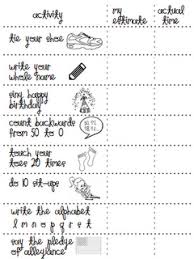 activity
my estimate
actual time
tie your shoe
write your
whole name
sing happy
birthday
count backwards
from 50 to 0
touch your
toes 20 times
do 10 sit-ups
write the alphabet
say the pledge
of allegiance